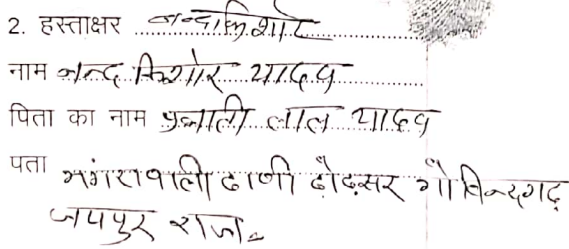 2. हस्ताक्षर नन्दकिशोर
नाम नन्द किशोर यादव
पिता का नाम लाल यादव
पता ढाणी ढोढसर गोविन्दगढ़
जयपुर राज.